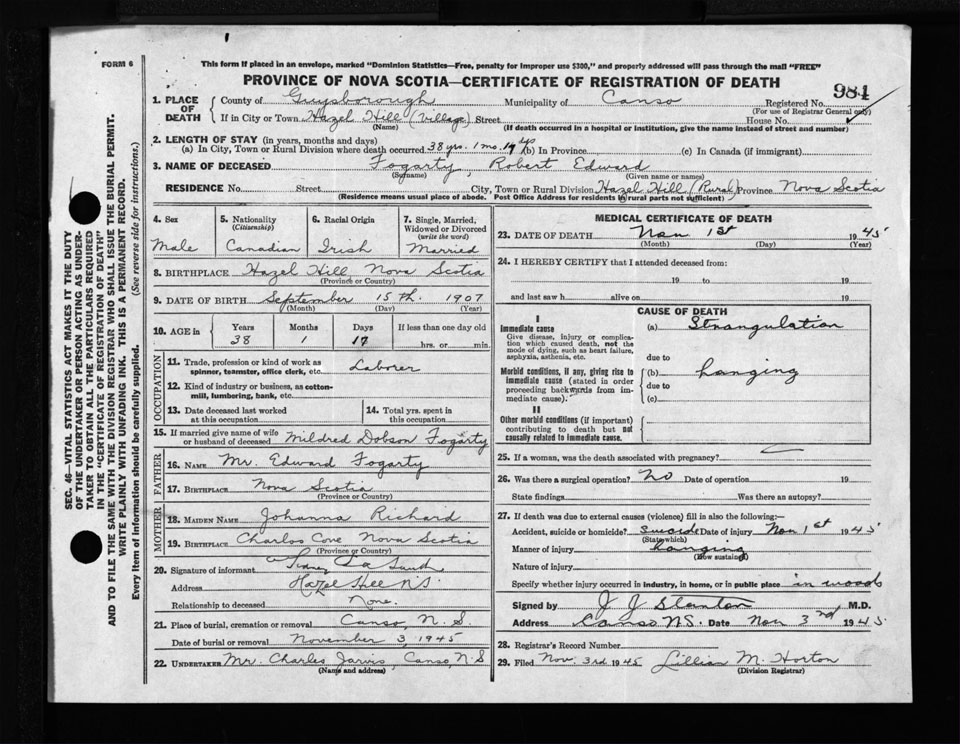 FORM 6
This form if placed in an envelope, marked "Dominion Statistics—Free, penalty for improper use $300," and properly addressed will pass through the mail "FREE"
PROVINCE OF NOVA SCOTIA—CERTIFICATE OF REGISTRATION OF DEATH
984
1. PLACE OF DEATH { County of Guysborough Municipality of Canso Registered No.
(For use of Registrar General only)
If in City or Town Hazel Hill (Village) Street House No.
(Name) (If death occurred in a hospital or institution, give the name instead of street and number)
2. LENGTH OF STAY (in years, months and days)
(a) In City, Town or Rural Division where death occurred 38 yrs. 1 mo. 17 (b) In Province (c) In Canada (if immigrant)
3. NAME OF DECEASED Fogarty, Robert Edward
(Surname) (Given name or names)
RESIDENCE No. Street City, Town or Rural Division Hazel Hill (Rural) Province Nova Scotia
(Residence means usual place of abode. Post Office Address for residents in rural parts not sufficient)
4. Sex
Male
5. Nationality
(Citizenship)
Canadian
6. Racial Origin
Irish
7. Single, Married, Widowed or Divorced
(write the word)
Married
8. BIRTHPLACE Hazel Hill, Nova Scotia
(Province or Country)
9. DATE OF BIRTH September 15th. 1907
(Month) (Day) (Year)
10. AGE in Years Months Days If less than one day old
38 1 17 hrs. or min.
OCCUPATION
11. Trade, profession or kind of work as spinner, teamster, office clerk, etc. Laborer
12. Kind of industry or business, as cotton-mill, lumbering, bank, etc.
13. Date deceased last worked at this occupation
14. Total yrs. spent in this occupation
15. If married give name of wife or husband of deceased Mildred Dobson Fogarty
FATHER
16. NAME Mr. Edward Fogarty
17. BIRTHPLACE Nova Scotia
(Province or Country)
MOTHER
18. MAIDEN NAME Johanna Richard
19. BIRTHPLACE Charlos Cove Nova Scotia
(Province or Country)
20. Signature of informant
Address Hazel Hill N.S.
Relationship to deceased None.
21. Place of burial, cremation or removal Canso, N.S.
Date of burial or removal November 3, 1945
22. UNDERTAKER Mr. Charles Jarvis, Canso, N.S
(Name and address)
MEDICAL CERTIFICATE OF DEATH
23. DATE OF DEATH Nov 1st 1945
(Month) (Day) (Year)
24. I HEREBY CERTIFY that I attended deceased from:
19 to 19
and last saw h alive on 19
CAUSE OF DEATH
I
Immediate cause (a) Strangulation
Give disease, injury or complication which caused death, not the mode of dying, such as heart failure, asphyxia, asthenia, etc.
due to
Morbid conditions, if any, giving rise to immediate cause (stated in order proceeding backwards from immediate cause).
(b) hanging
due to
(c)
II
Other morbid conditions (if important) contributing to death but not causally related to immediate cause.
25. If a woman, was the death associated with pregnancy?
26. Was there a surgical operation? No Date of operation 19
State findings Was there an autopsy?
27. If death was due to external causes (violence) fill in also the following:—
Accident, suicide or homicide? suicide Date of injury Nov 1st 1945
(State which)
Manner of injury hanging
(How sustained)
Nature of injury
Specify whether injury occurred in industry, in home, or in public place in woods
Signed by J J Stanton M.D.
Address Canso N.S. Date Nov 3rd 1945
28. Registrar's Record Number
29. Filed Nov. 3rd 1945 Lillian M. Horton
(Division Registrar)
SEC. 46—VITAL STATISTICS ACT MAKES IT THE DUTY
OF THE UNDERTAKER OR PERSON ACTING AS UNDER-
TAKER TO OBTAIN ALL THE PARTICULARS REQUIRED
IN THE "CERTIFICATE OF REGISTRATION OF DEATH"
AND TO FILE THE SAME WITH THE DIVISION REGISTRAR WHO SHALL ISSUE THE BURIAL PERMIT.
WRITE PLAINLY WITH UNFADING INK. THIS IS A PERMANENT RECORD.
Every item of information should be carefully supplied. (See reverse side for instructions.)